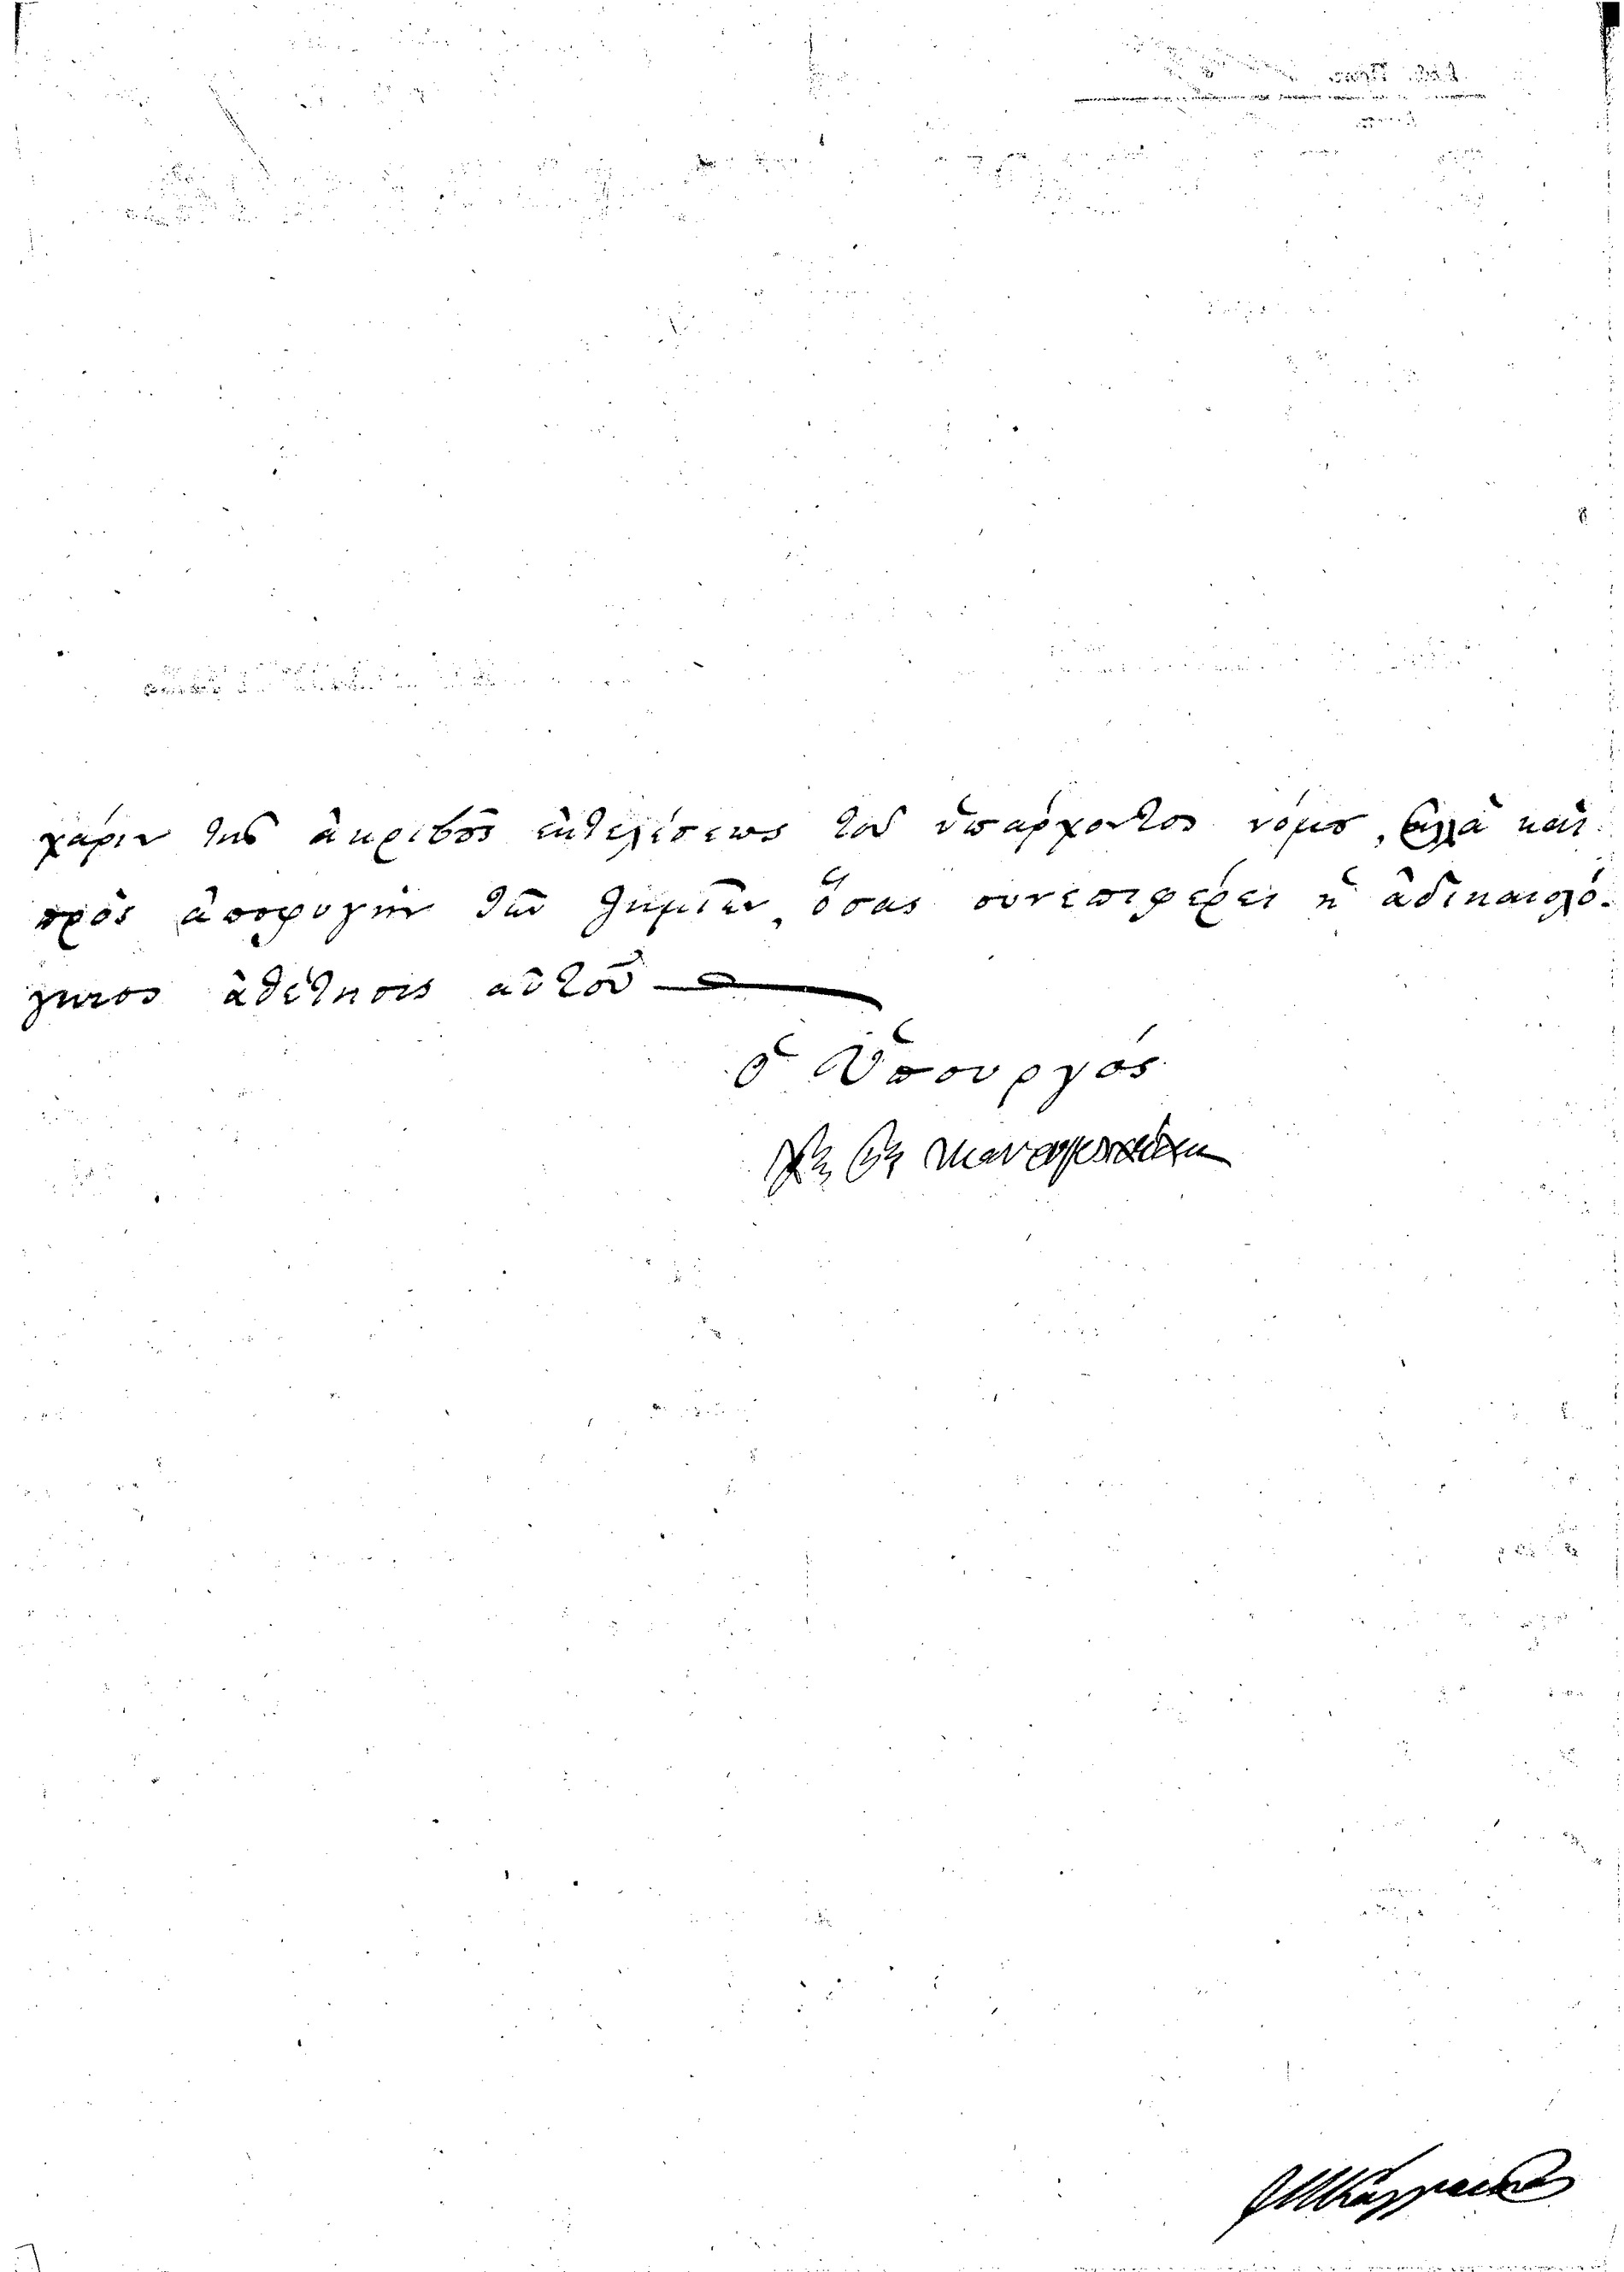 χάριν τῆς ἀκριβοῦς ἐκτελέσεως τοῦ ὑπάρχοντος νόμου, ἀλλὰ καὶ
πρὸς ἀποφυγὴν τῶν ζημιῶν, ὅσας συνεπιφέρει ἡ ἀδικαιολό-
γητος ἀθέτησις αὐτοῦ
ὁ Ὑπουργός